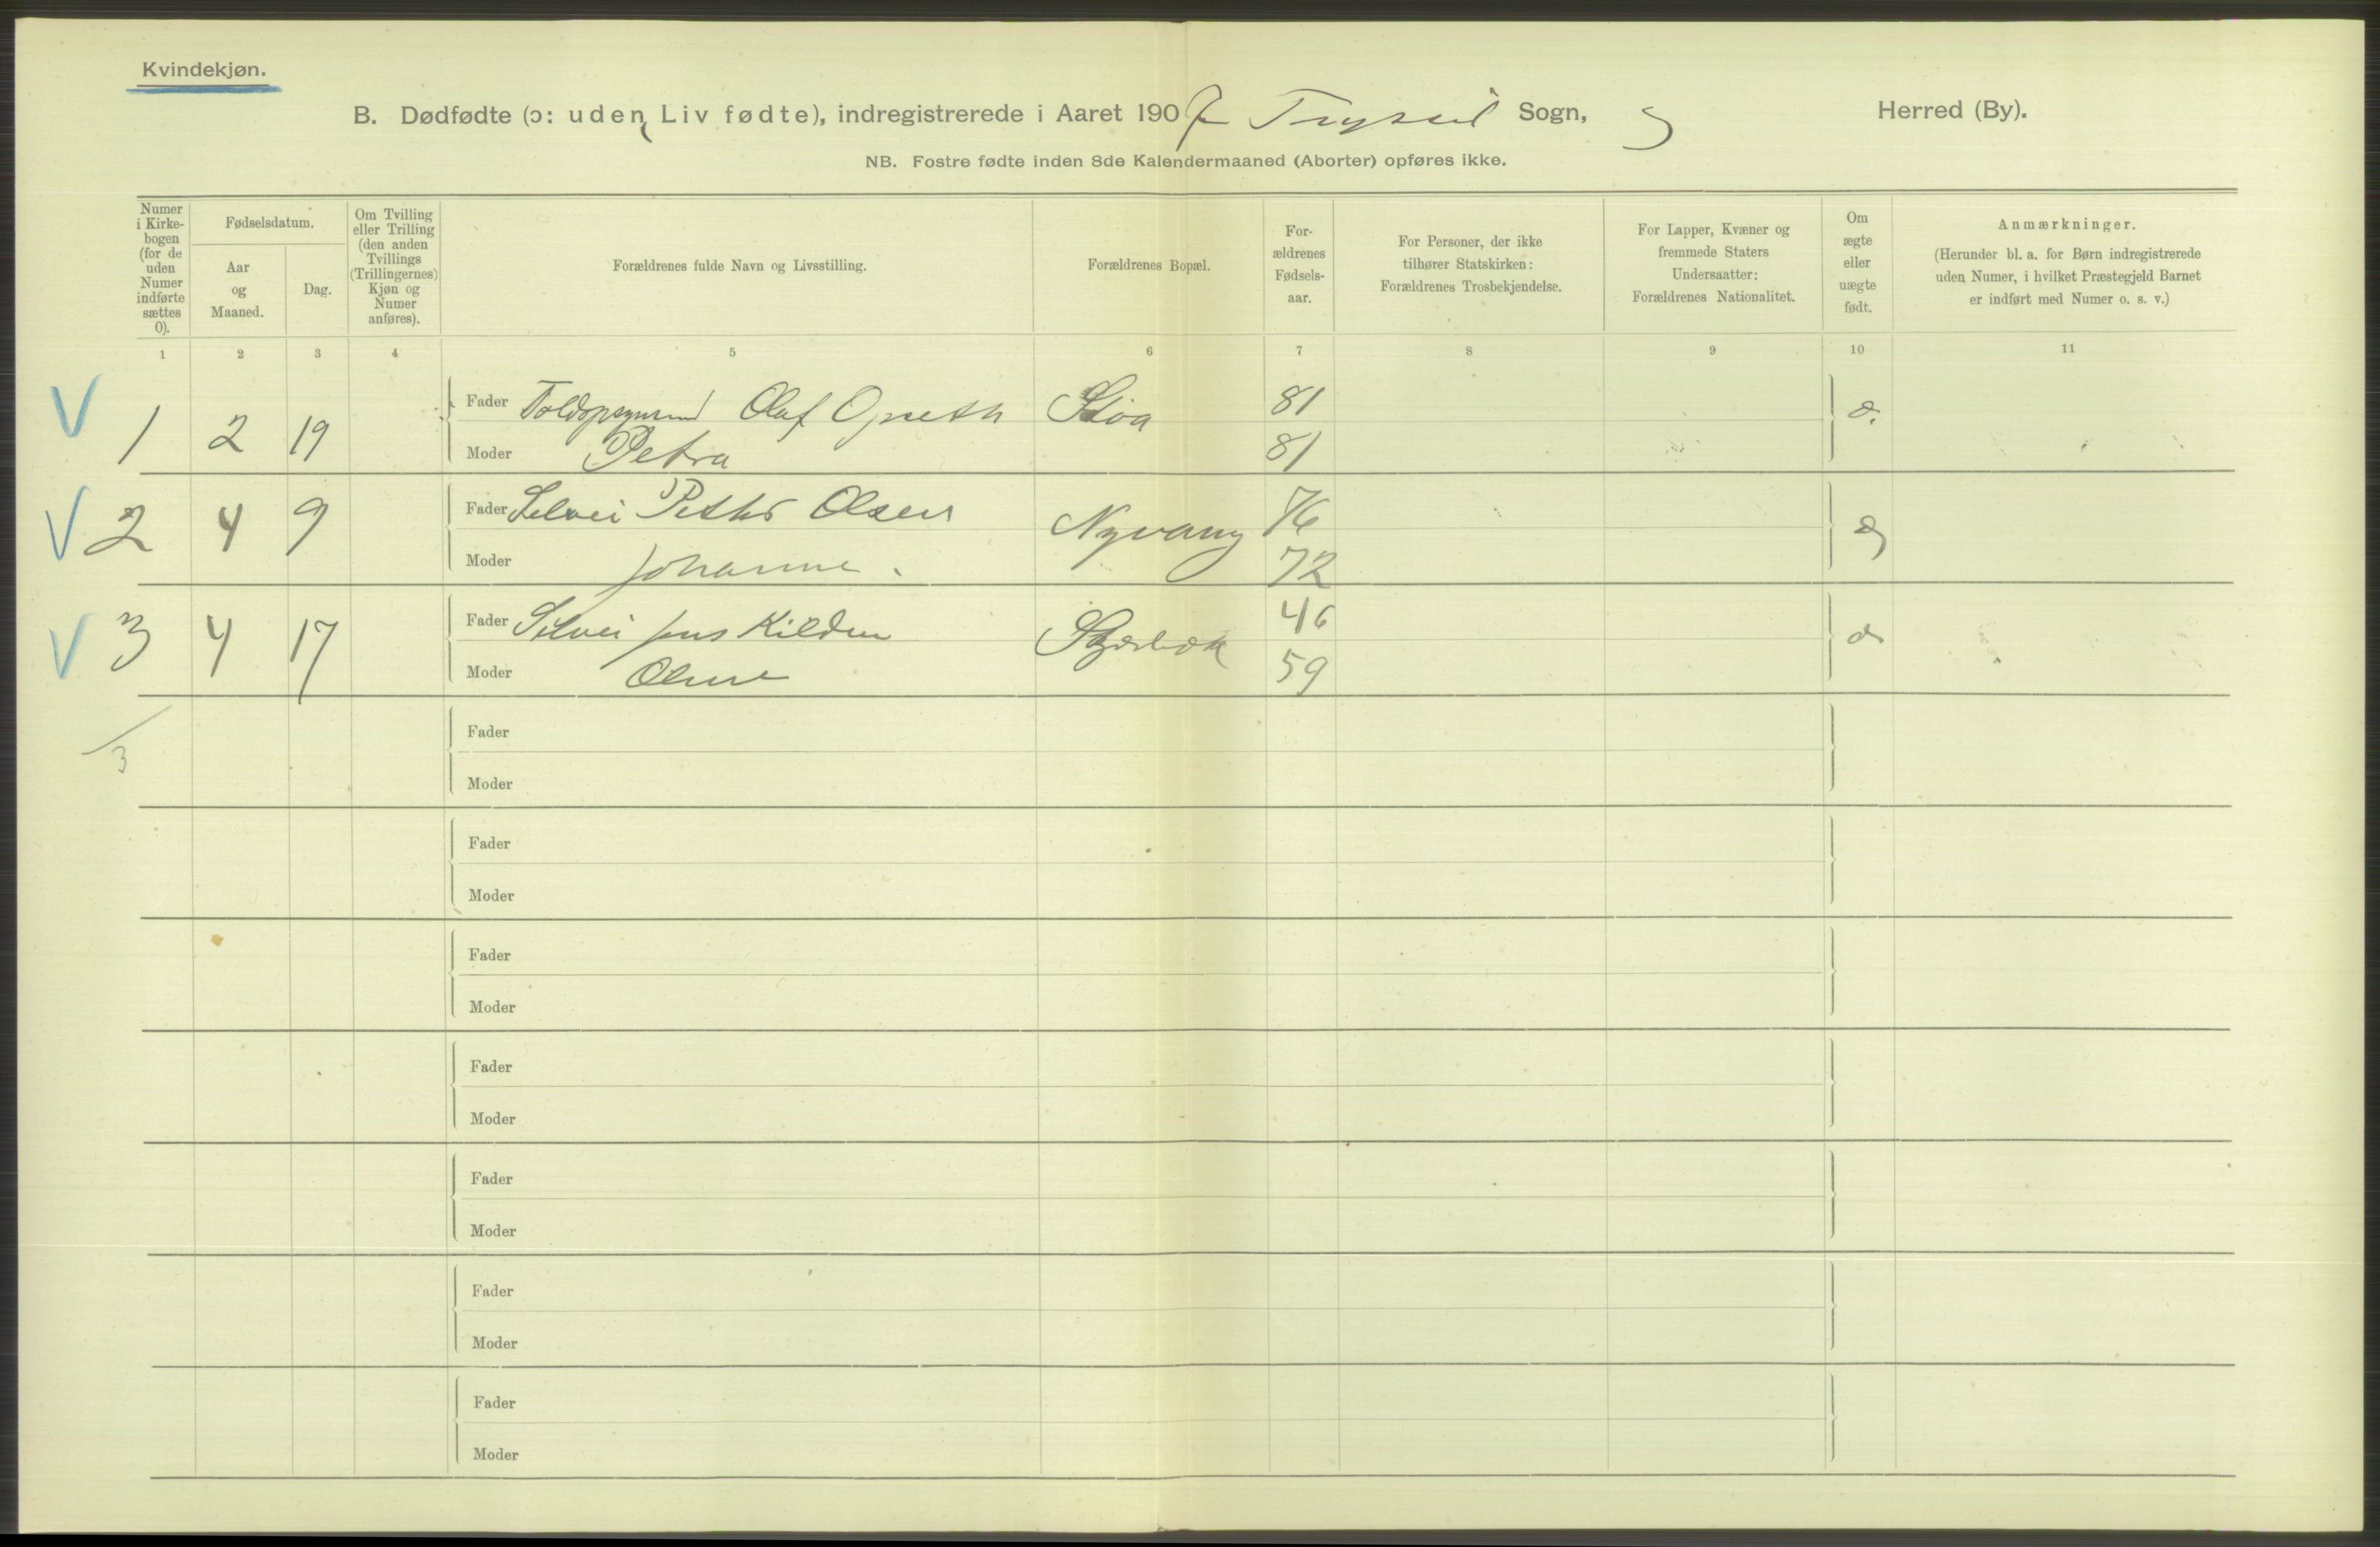 Kvindekjøn.
B. Dødfødte (ɔ: uden Liv fødte), indregistrerede i Aaret 1907 Trysil Sogn, Herred (By).
NB. Fostre fødte inden 8de Kalendermaaned (Aborter) opføres ikke.
Numer i Kirke-bogen (for de uden Numer indførte sættes 0).
Fødselsdatum.
Aar og Maaned.
Dag.
Om Tvilling eller Trilling (den anden Tvillings (Trillingernes) Kjøn og Numer anføres).
Forældrenes fulde Navn og Livsstilling.
Forældrenes Bopæl.
For-ældrenes Fødsels-aar.
For Personer, der ikke tilhører Statskirken: Forældrenes Trosbekjendelse.
For Lapper, Kvæner og fremmede Staters Undersaatter: Forældrenes Nationalitet.
Om ægte eller uægte født.
Anmærkninger.
(Herunder bl. a. for Børn indregistrerede uden Numer, i hvilket Præstegjeld Barnet er indført med Numer o. s. v.)
1 2 3 4 5 6 7 8 9 10 11
V 1 2 19 Fader Olaf Opseth Støa 81
Moder Petra 81
V 2 4 9 Fader Selvei Petter Olsen Nyvang 76
Moder Johanne. 72
V 3 4 17 Fader Selvei Jens Kilden 46
Moder Oline 59
3
Fader
Moder
Fader
Moder
Fader
Moder
Fader
Moder
Fader
Moder
Fader
Moder
Fader
Moder